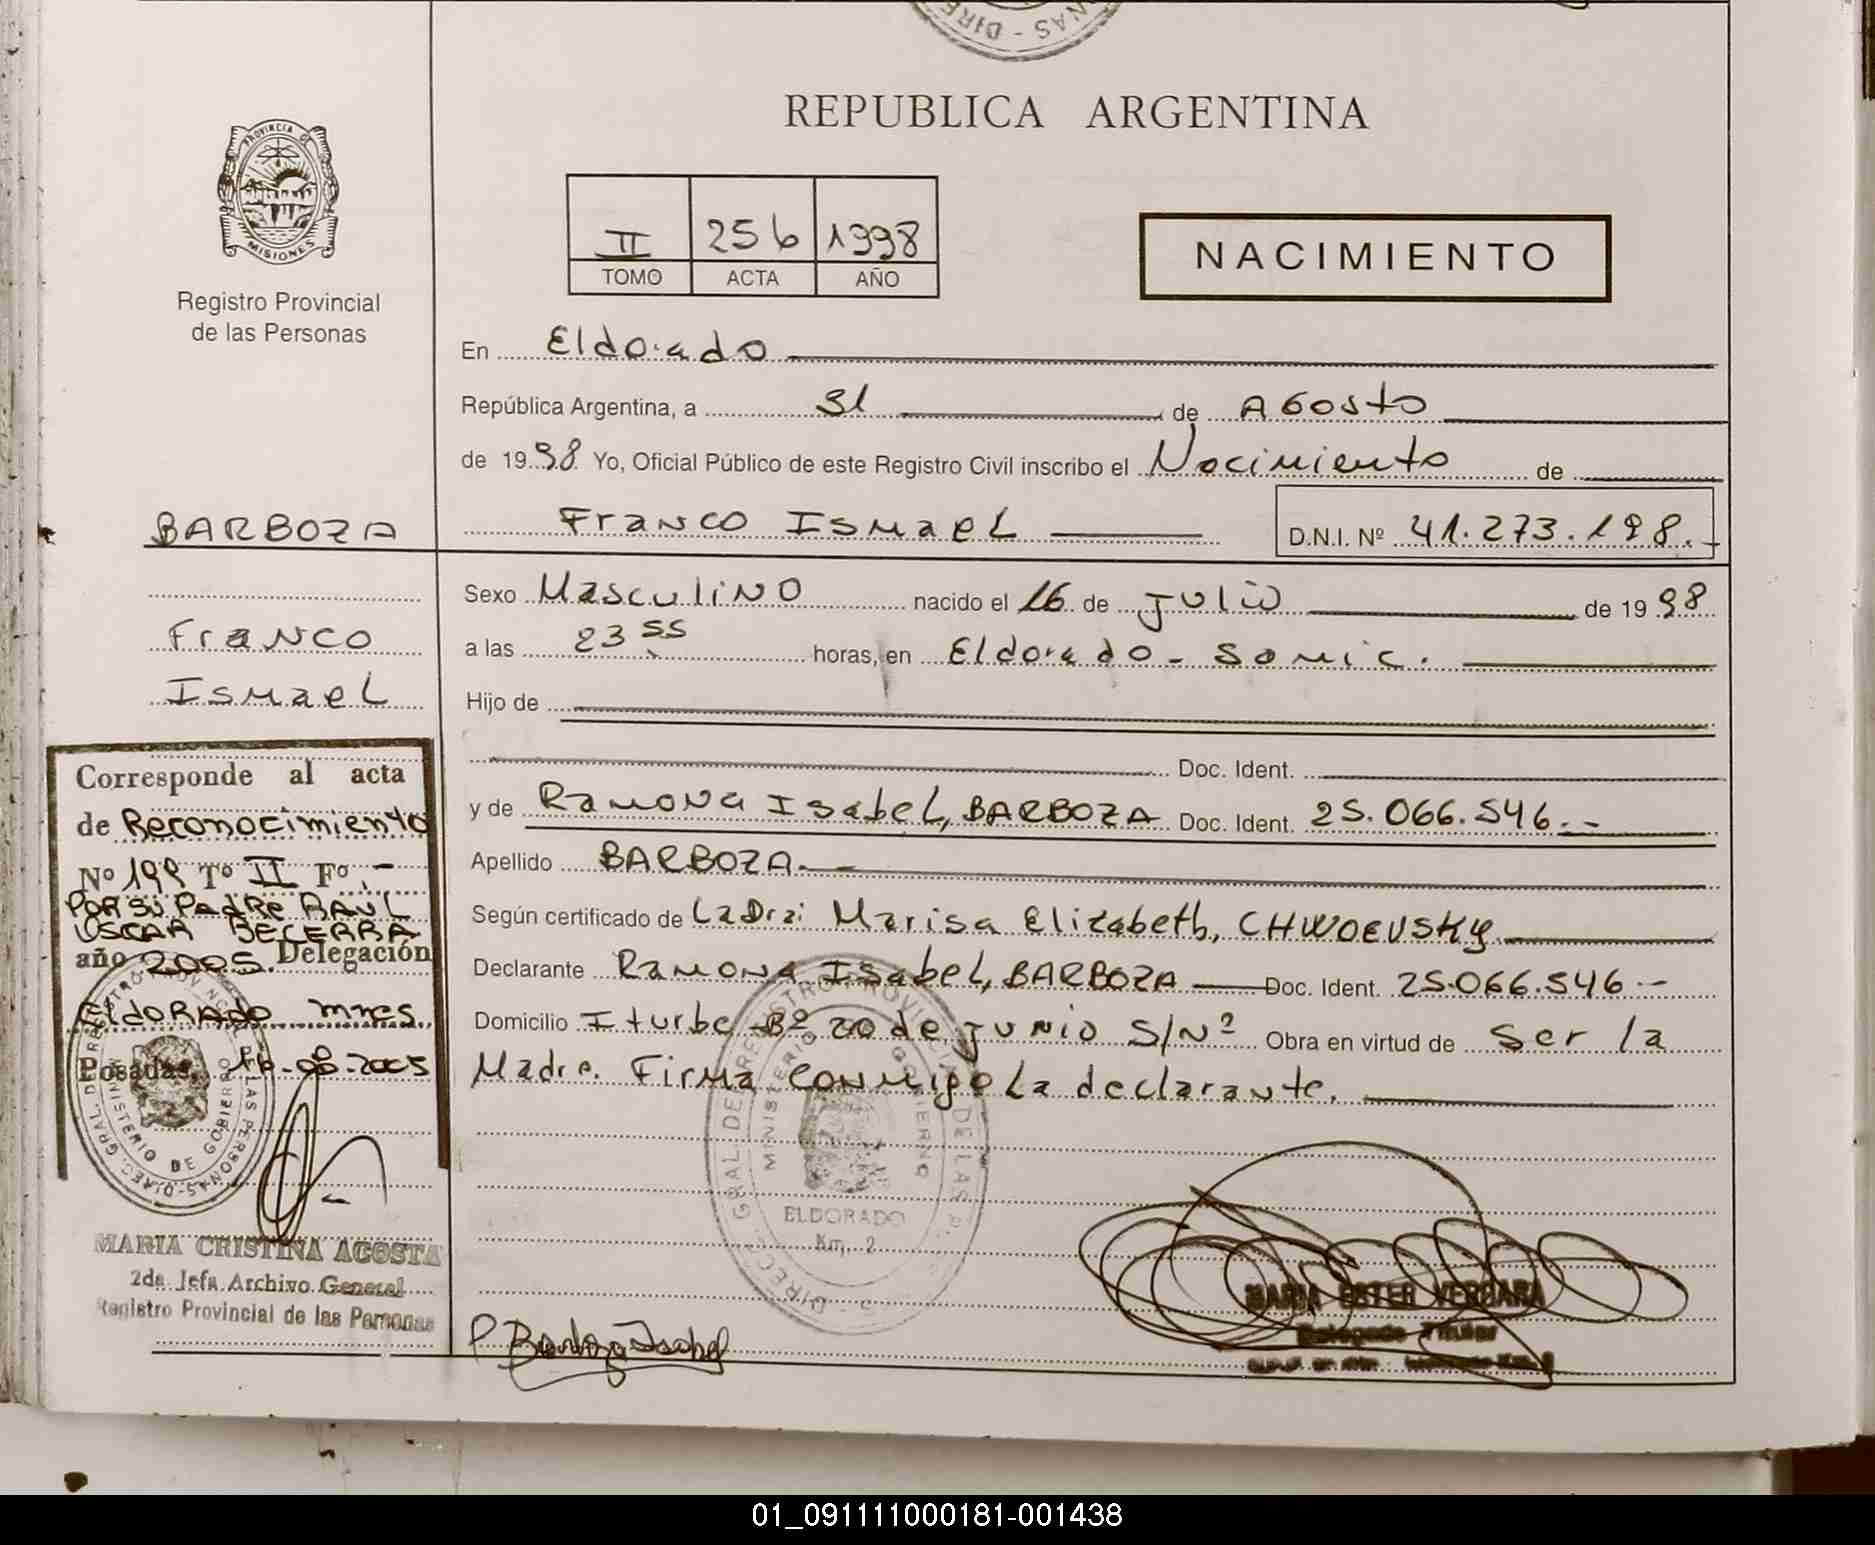 REPUBLICA ARGENTINA
PROVINCIA DE
MISIONES
Registro Provincial
de las Personas
II 256 1998
TOMO ACTA AÑO
NACIMIENTO
En Eldorado
República Argentina, a 31 de Agosto
de 1998 Yo, Oficial Público de este Registro Civil inscribo el Nacimiento de
Franco Ismael D.N.I. Nº 41.273.198.-
Sexo Masculino nacido el 16 de Julio de 1998
a las 23 55 horas, en Eldorado - Samic.
Hijo de
Doc. Ident.
y de Ramona Isabel, BARBOZA Doc. Ident. 25.066.546.-
Apellido BARBOZA.-
Según certificado de La Dra: Marisa Elizabeth, CHWOEVSKY
Declarante Ramona Isabel, BARBOZA Doc. Ident. 25.066.546.-
Domicilio Iturbe Bº 20 de Junio S/Nº Obra en virtud de Ser la
Madre. Firma conmigo la declarante.
BARBOZA
Franco
Ismael
Corresponde al acta
de Reconocimiento
Nº 199 Tº II Fº -
POR SU PADRE RAUL
OSCAR BECERRA
año 2005. Delegación
ELDORADO mnes.
Posadas, 16-08-2005
MINISTERIO DE GOBIERNO
MARIA CRISTINA ACOSTA
2da. Jefa Archivo General
Registro Provincial de las Personas
MINISTERIO GOBIERNO
ELDORADO
Km. 2
P. Barboza Isabel
MARIA ESTER VERGARA
Delegada Titular
01_091111000181-001438